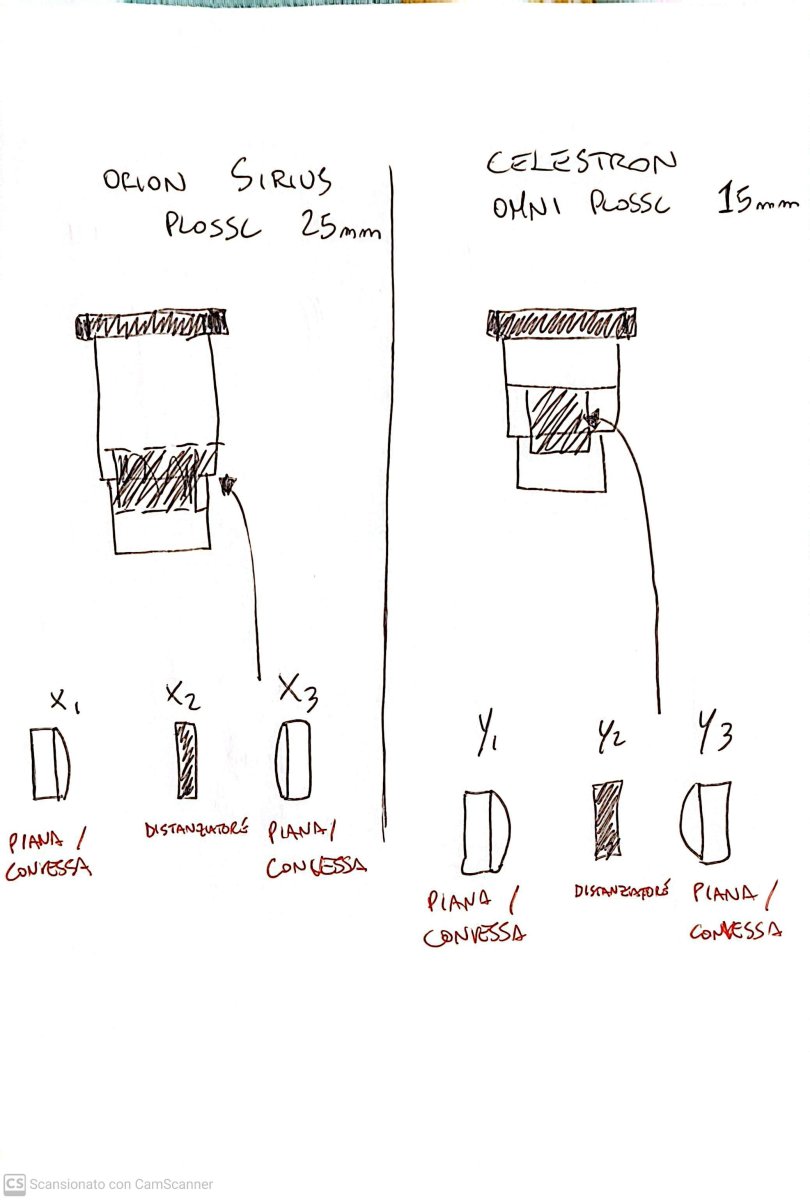 ORION SIRIUS
PLOSSL 25mm
CELESTRON
OMNI PLOSSL 15mm
X1
X2
X3
PIANA /
CONVESSA
DISTANZIATORE
PIANA /
CONVESSA
Y1
Y2
Y3
PIANA /
CONVESSA
DISTANZIATORE
PIANA /
CONVESSA
CS Scansionato con CamScanner